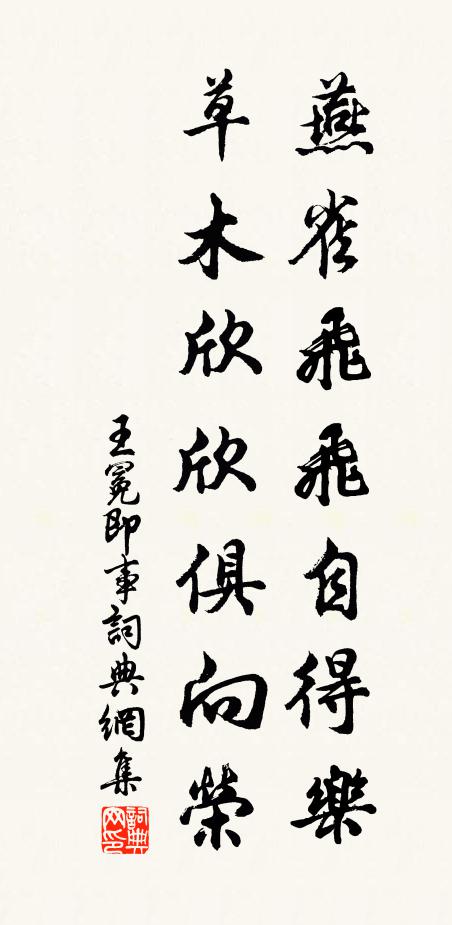 燕雀飛飛自得樂
草木欣欣俱向榮
王冕即事詞典網集
詞典
网印